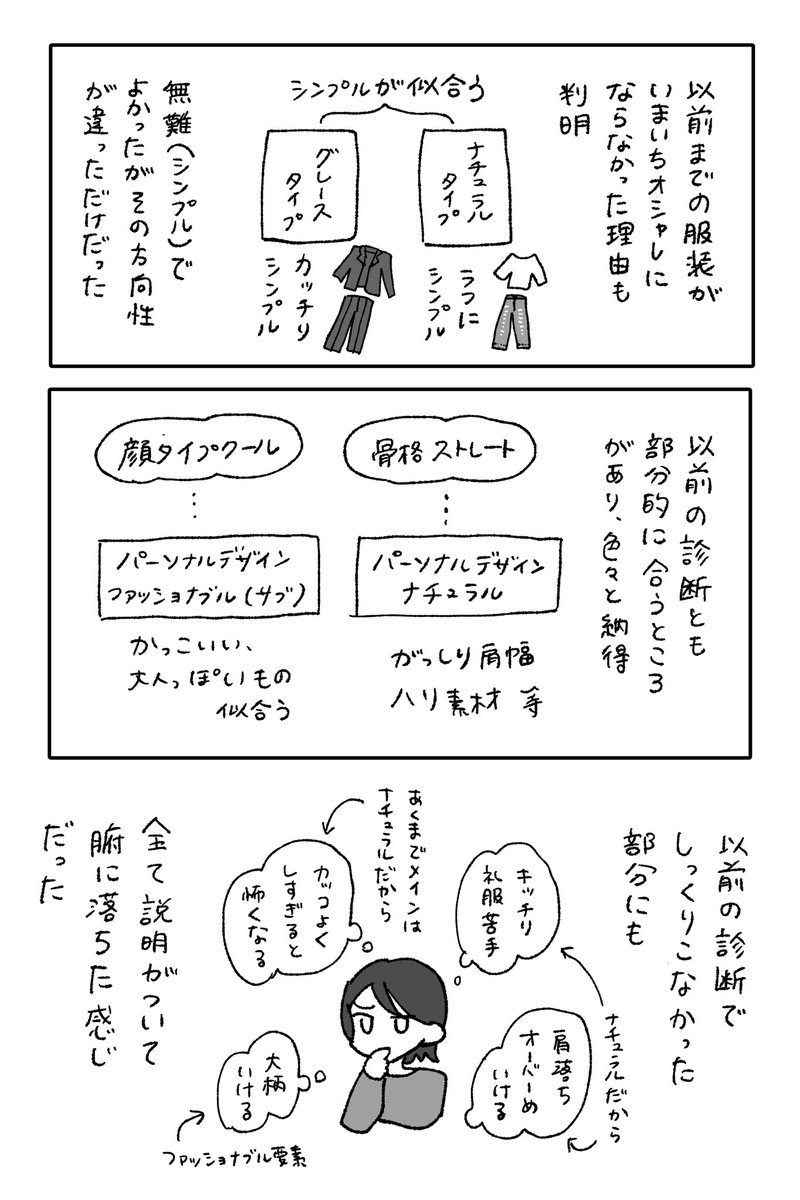 以前までの服装が
いまいちオシャレに
ならなかった理由も
判明
シンプルが似合う
ナチュラル
タイプ
ラフに
シンプル
グレース
タイプ
カッチリ
シンプル
無難(シンプル)で
よかったがその方向性
が違っただけだった
以前の診断とも
部分的に合うところ
があり、色々と納得
骨格ストレート
パーソナルデザイン
ナチュラル
がっしり肩幅
ハリ素材 等
顔タイプクール
パーソナルデザイン
ファッショナブル(サブ)
かっこいい、
大人っぽいもの
似合う
以前の診断で
しっくりこなかった
部分にも
キッチリ
礼服苦手
肩落ち
オーバーめ
いける
ナチュラルだから
あくまでメインは
ナチュラルだから
カッコよく
しすぎると
怖くなる
大柄
いける
ファッショナブル要素
全て説明がついて
腑に落ちた感じ
だった